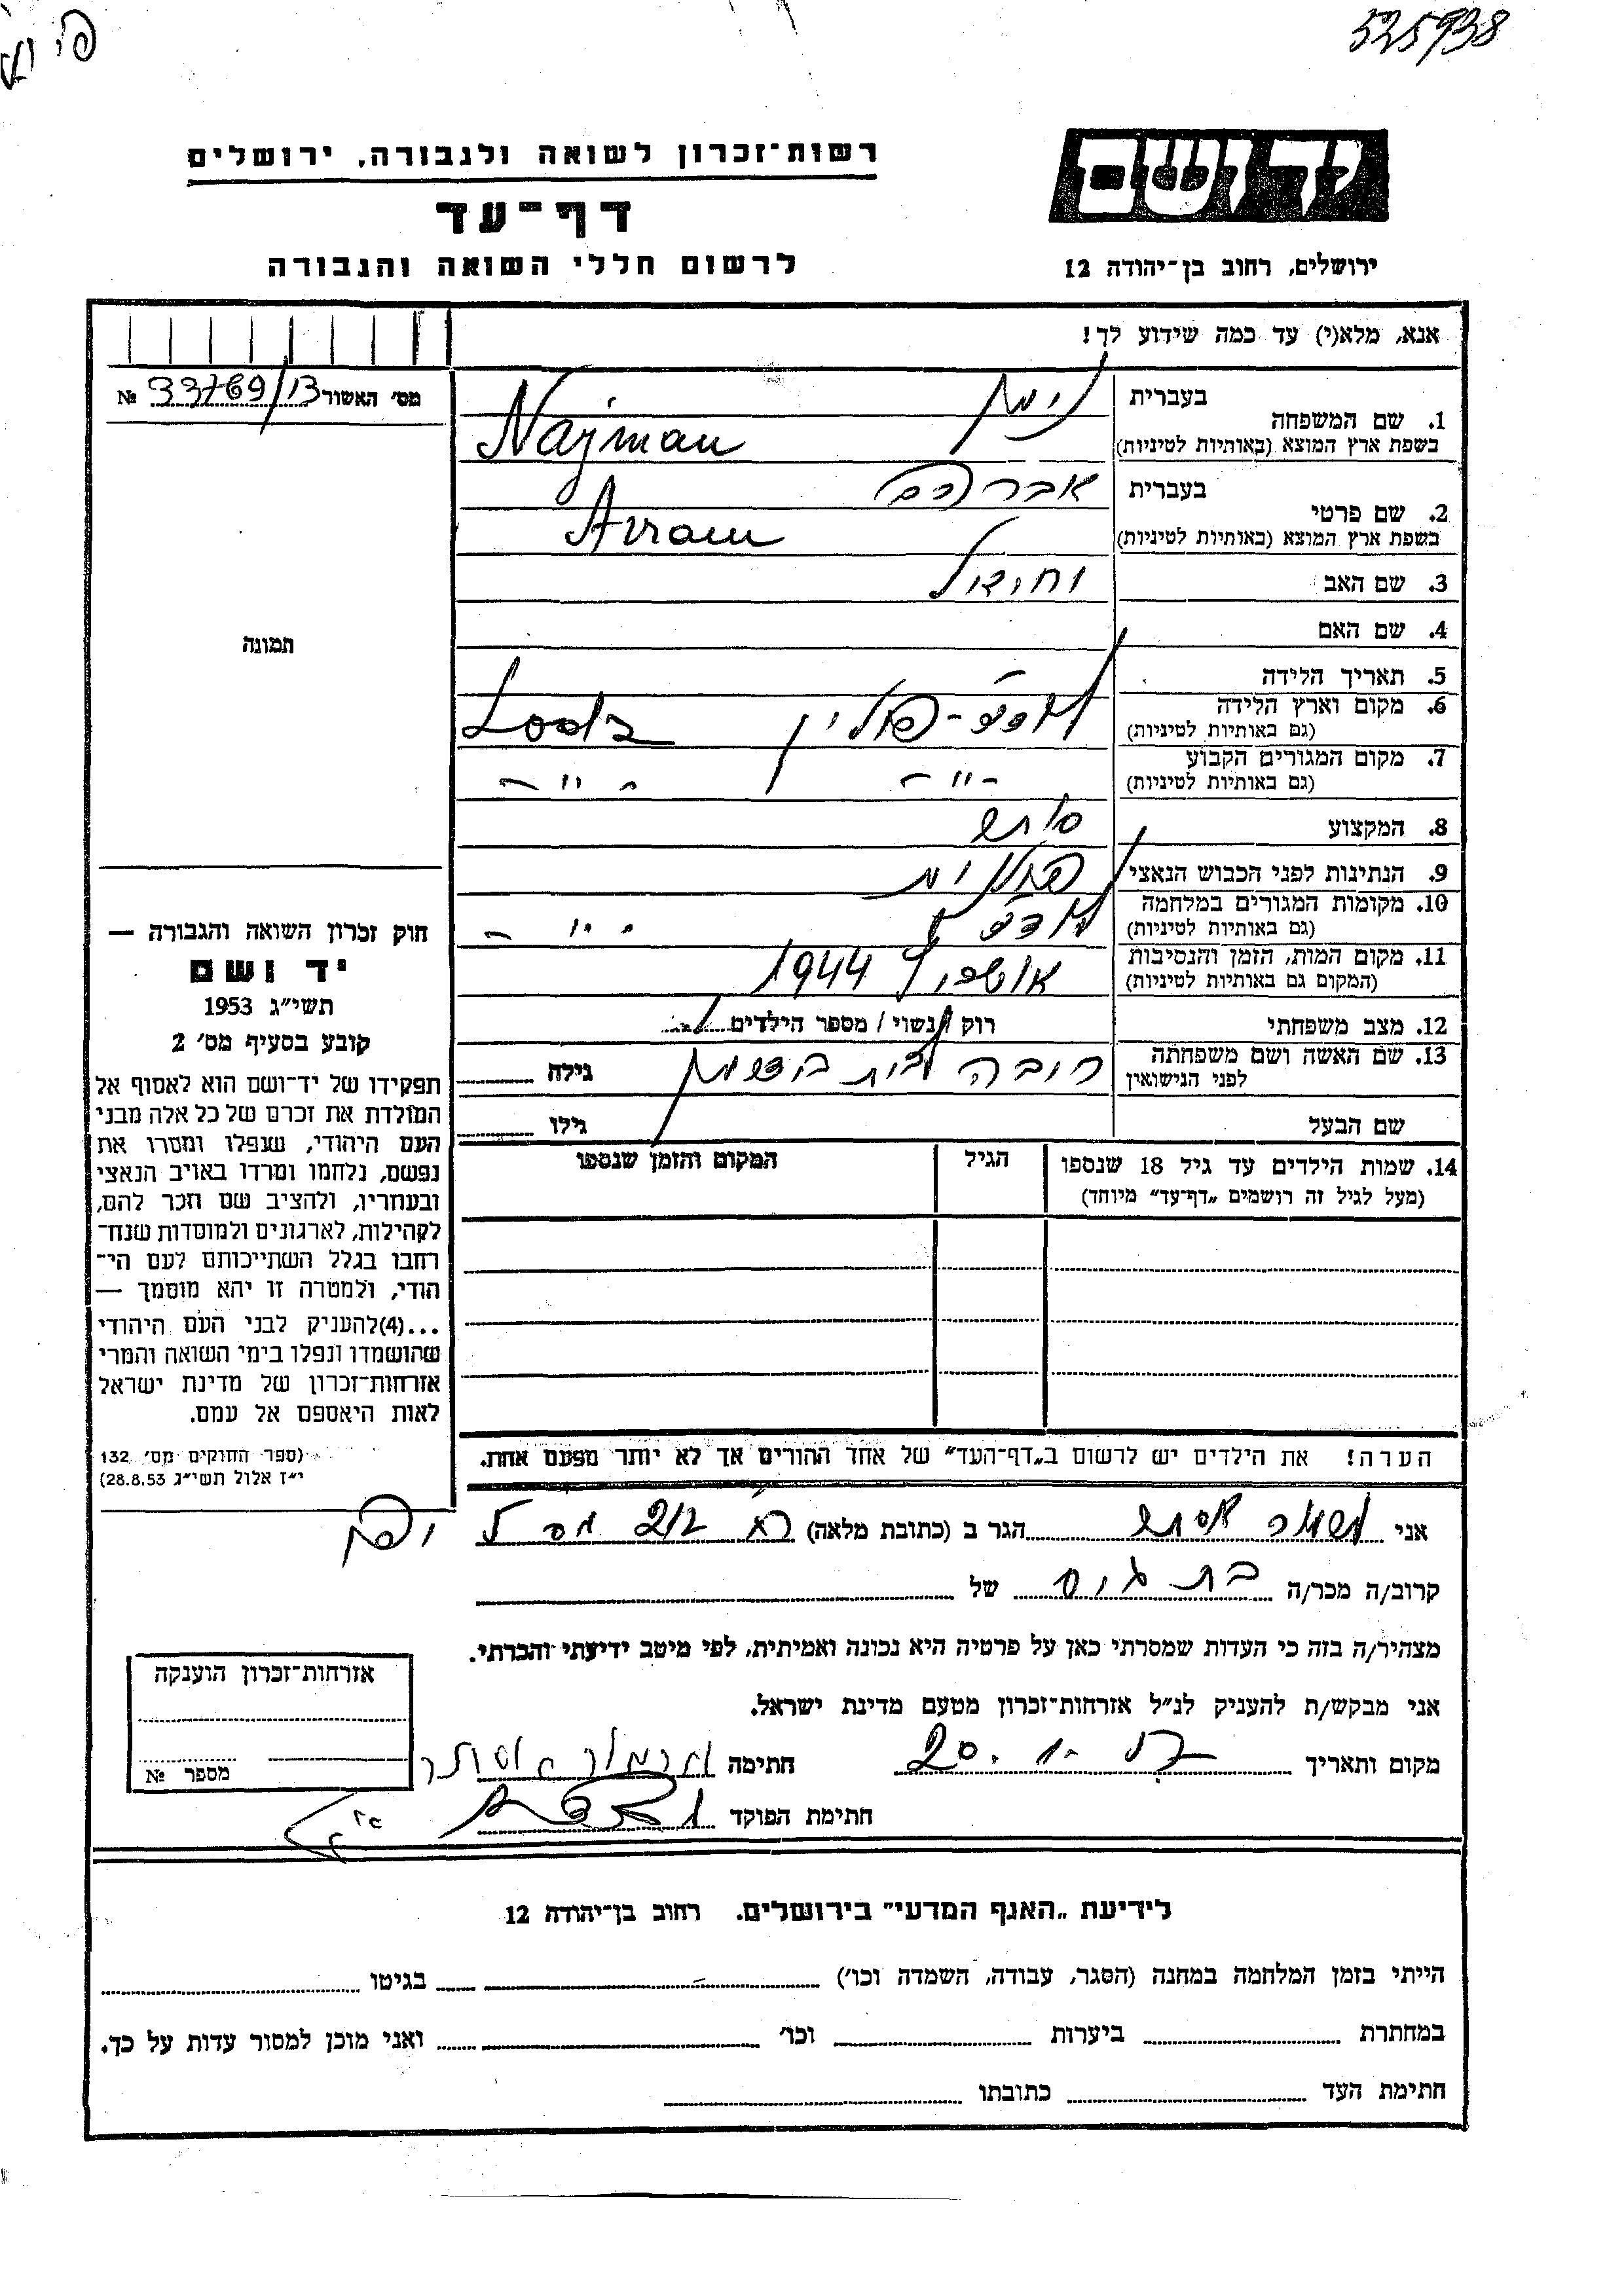 525938
יד ושם
ירושלים, רחוב בן־יהודה 12
רשות־זכרון לשואה ולגבורה, ירושלים
דף־עד
לרשום חללי השואה והגבורה
אנא, מלא(י) עד כמה שידוע לך!
מס׳ האשור 33769/13 №
1. שם המשפחה
בעברית נימן
בשפת ארץ המוצא (באותיות לטיניות) Najman
2. שם פרטי
בעברית אברהם
בשפת ארץ המוצא (באותיות לטיניות) Avram
3. שם האב יחיאל
4. שם האם
5. תאריך הלידה
6. מקום וארץ הלידה
(גם באותיות לטיניות) לודז׳ - פולין Lodz
7. מקום המגורים הקבוע
(גם באותיות לטיניות) -״- -״-
8. המקצוע
9. הנתינות לפני הכבוש הנאצי פולנית
10. מקומות המגורים במלחמה
(גם באותיות לטיניות) לודז׳ -״-
11. מקום המות, הזמן והנסיבות
(המקום גם באותיות לטיניות) אושויץ 1944
12. מצב משפחתי רווק / נשוי / מספר הילדים
13. שם האשה ושם משפחתה
לפני הנישואין חובה לבית גילה
שם הבעל גילו
14. שמות הילדים עד גיל 18 שנספו הגיל המקום והזמן שנספו
(מעל לגיל זה רושמים „דף־עד״ מיוחד)
הערה! את הילדים יש לרשום ב„דף־העד״ של אחד ההורים אך לא יותר מפעם אחת.
תמונה
חוק זכרון השואה והגבורה —
יד ושם
תשי״ג 1953
קובע בסעיף מס׳ 2
תפקידו של יד־ושם הוא לאסוף אל
המולדת את זכרם של כל אלה מבני
העם היהודי, שנפלו ומסרו את
נפשם, נלחמו ומרדו באויב הנאצי
ובעוזריו, ולהציב שם וזכר להם,
לקהילות, לארגונים ולמוסדות שנח־
רבו בגלל השתייכותם לעם הי־
הודי, ולמטרה זו יהא מוסמך —
...(4)להעניק לבני העם היהודי
שהושמדו ונפלו בימי השואה והמרי
אזרחות־זכרון של מדינת ישראל
לאות היאספם אל עמם.
(ספר החוקים מס׳ 132
י״ז אלול תשי״ג 28.8.53)
אני אסתר הגר ב (כתובת מלאה)
קרוב/ה מכר/ה בת גיס של
מצהיר/ה בזה כי העדות שמסרתי כאן על פרטיה היא נכונה ואמיתית, לפי מיטב ידיעתי והכרתי.
אני מבקש/ת להעניק לנ״ל אזרחות־זכרון מטעם מדינת ישראל.
מקום ותאריך חתימה אסתר
חתימת הפוקד
אזרחות־זכרון הוענקה
מספר №
לידיעת „האגף המדעי״ בירושלים. רחוב בן־יהודה 12
הייתי בזמן המלחמה במחנה (הסגר, עבודה, השמדה וכו׳) בגיטו
במחתרת ביערות וכו׳ ואני מוכן למסור עדות על כך.
חתימת העד כתובתו